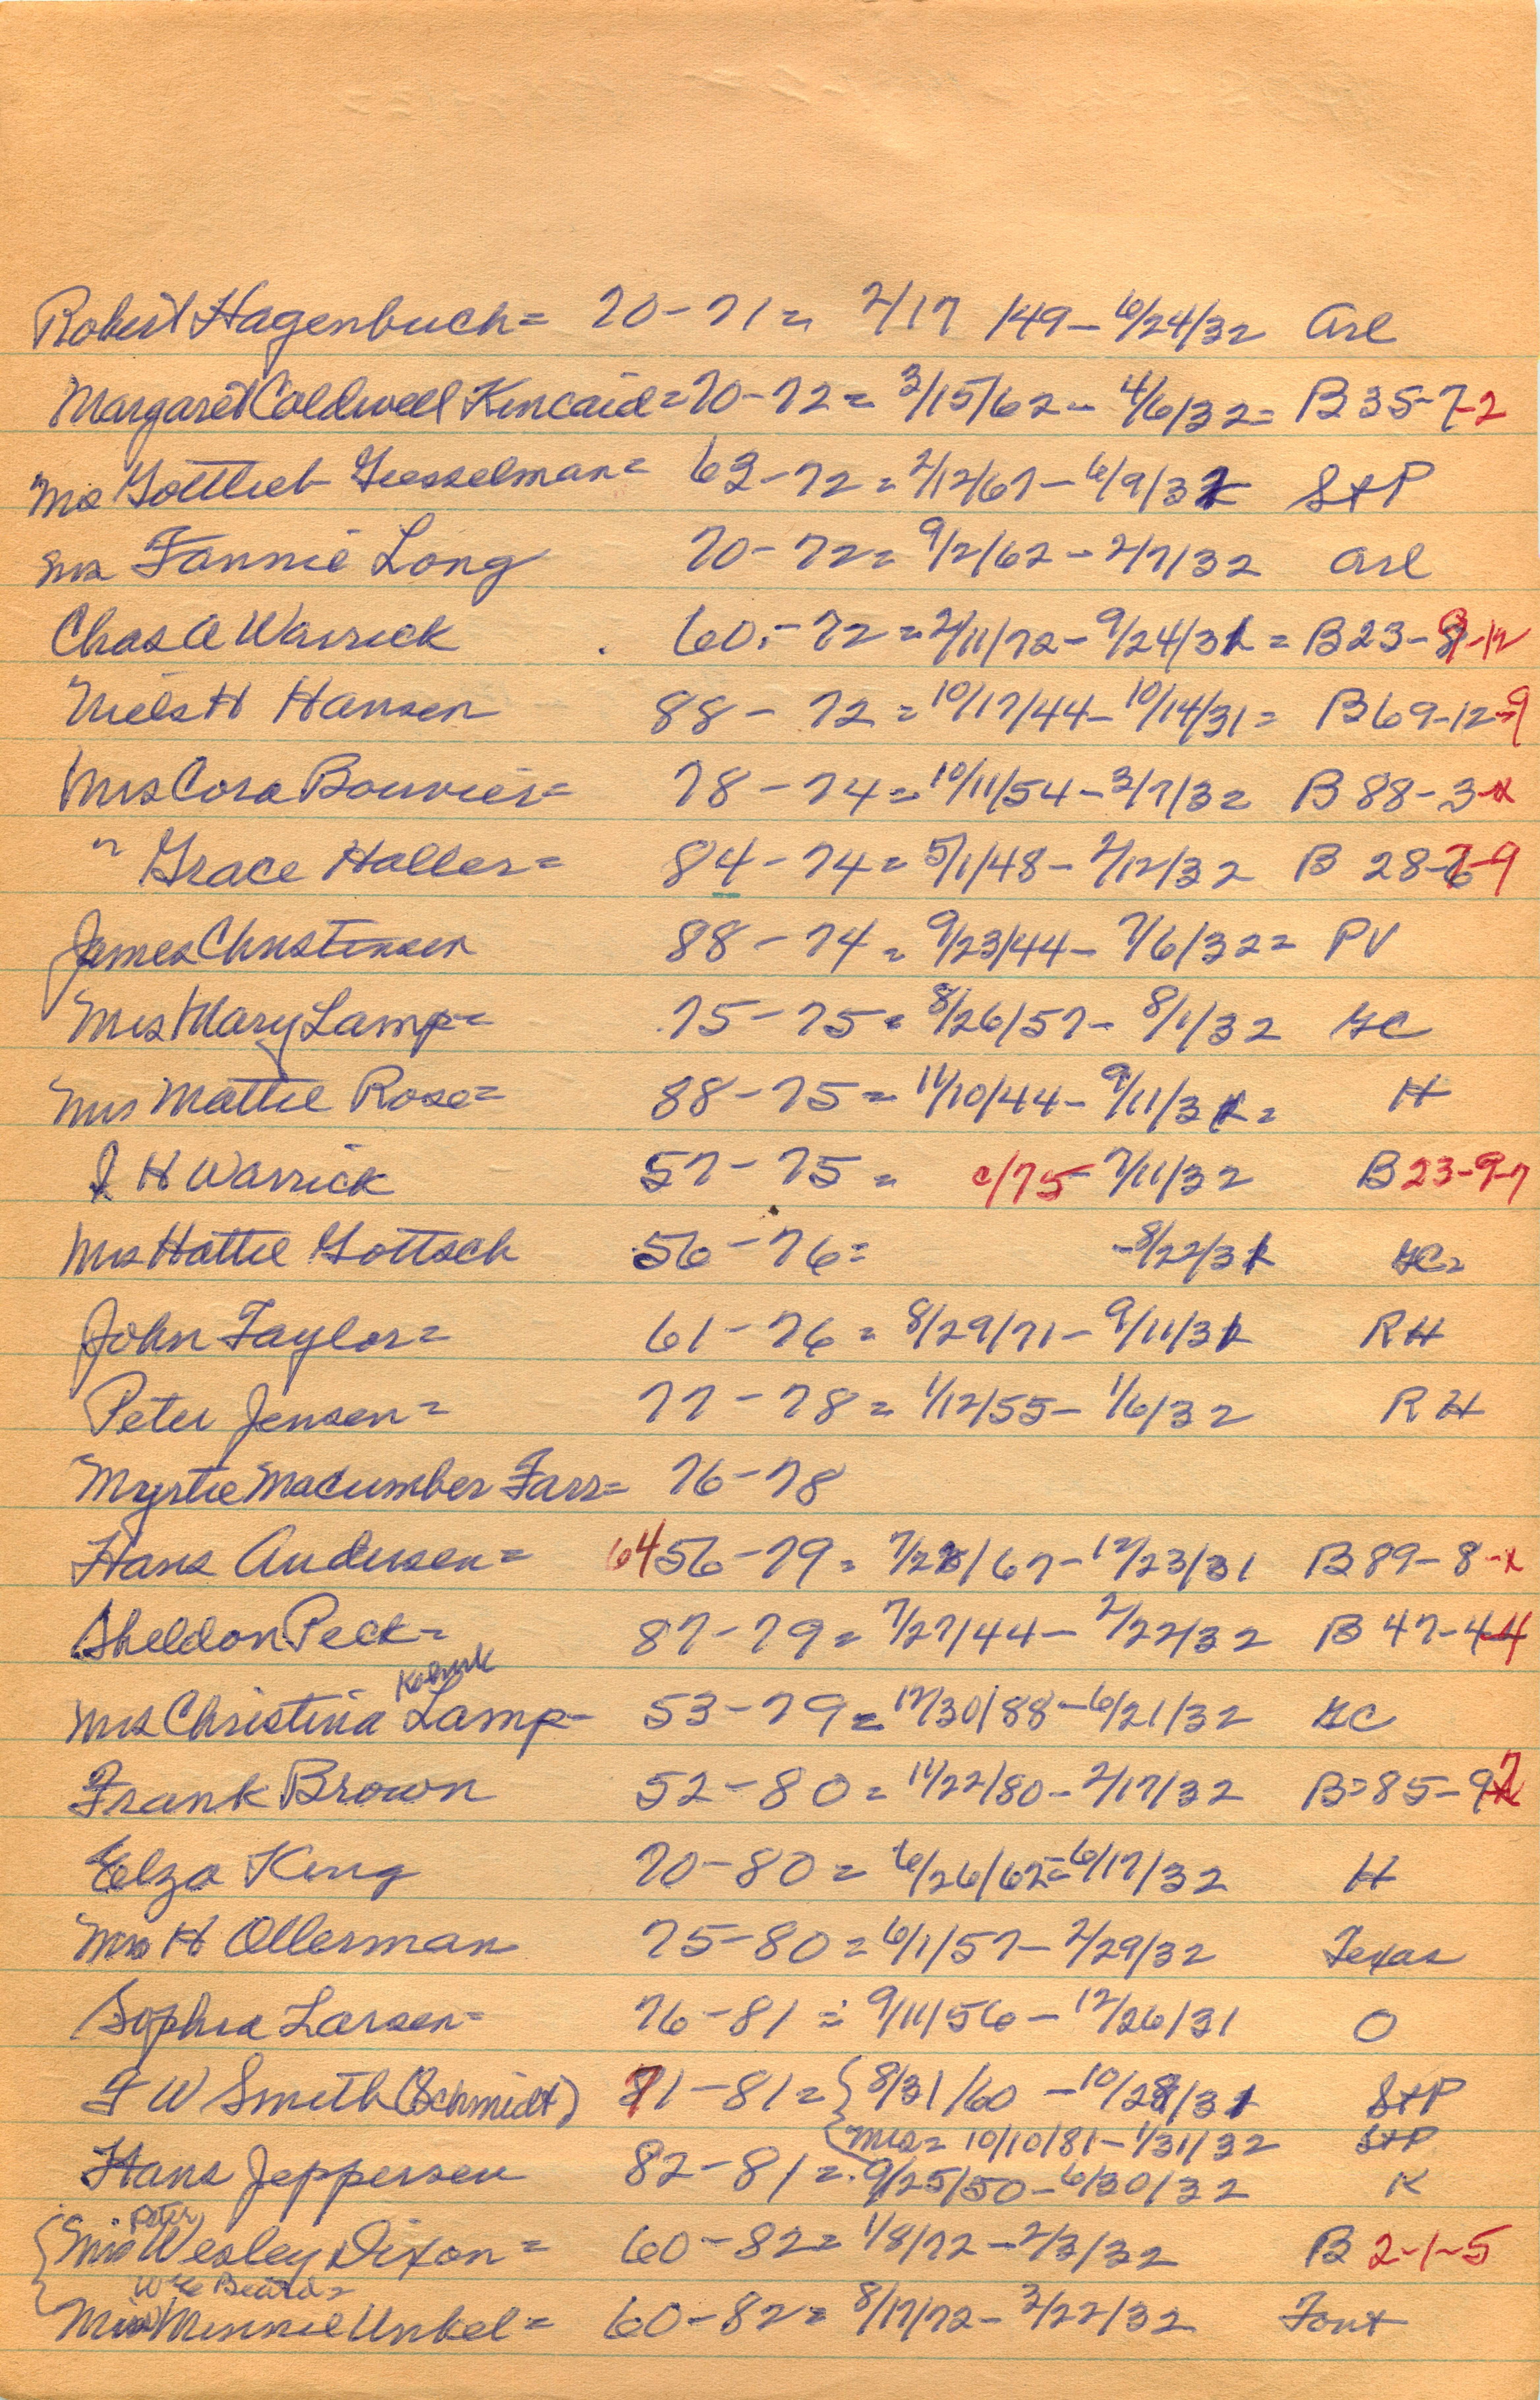 Robert Hagenbuch = 70-71 = 2/17/49 - 6/24/32 Arl
Margaret Coldwell Kincaid = 70-72 = 3/15/62 - 4/6/32 = B 35-7-2
Mrs Gottlieb Giesselman = 63-72 = 2/12/67 - 6/9/32 S+P
Mrs Fannie Long 70-72 = 9/2/62 - 2/7/32 Arl
Chas A Warrick 60-72 = 2/11/72 - 9/24/31 = B 23-9-12
Niels H Hansen 88-72 = 10/17/44 - 10/14/31 = B 69-12-9
Mrs Cora Bouvier = 78-74 = 10/11/54 - 3/7/32 B 88-3-x
" Grace Haller = 84-74 = 5/1/48 - 2/12/32 B 28-7-9
James Christensen 88-74 = 9/23/44 - 7/6/32 = PV
Mrs Mary Lamp = 75-75 = 8/26/57 - 8/1/32 GC
Mrs Mattie Rose = 88-75 = 11/10/44 - 9/11/31 = H
J H Warrick 57-75 = c/75 - 7/11/32 B 23-9-7
Mrs Hattie Gottsch 56-76 = - 8/22/31 GC =
John Taylor = 61-76 = 8/29/71 - 9/11/31 RH
Peter Jensen = 77-78 = 1/12/55 - 1/6/32 RH
Myrtie Macumber Farr = 76-78
Hans Andersen = 64 56-79 = 7/28/67 - 12/23/31 B 89-8-x
Sheldon Peck = 87-79 = 7/27/44 - 2/22/32 B 47-4-4
Mrs Christina Lamp - 53-79 = 12/30/88 - 6/21/32 GC
Frank Brown 52-80 = 11/22/80 - 2/17/32 B = 85-9-2
Elza King 70-80 = 6/26/62 = 6/17/32 H
Mrs H Ollerman 75-80 = 6/1/57 - 2/29/32 Texas
Sophia Larsen = 76-81 = 9/11/56 - 12/26/31 O
F W Smith (Schmidt) 71-81 = { 8/31/60 - 10/28/31 S+P
Mrs = 10/10/81 - 1/31/32 S+P
Hans Jeppersen 82-81 = 9/25/50 - 6/30/32 K
Peter
Mrs Wesley Dixon = 60-82 = 1/8/72 - 2/3/32 B 2-1-5
Mrs Minnie Unkel = 60-82 = 8/17/72 - 3/22/32 Font